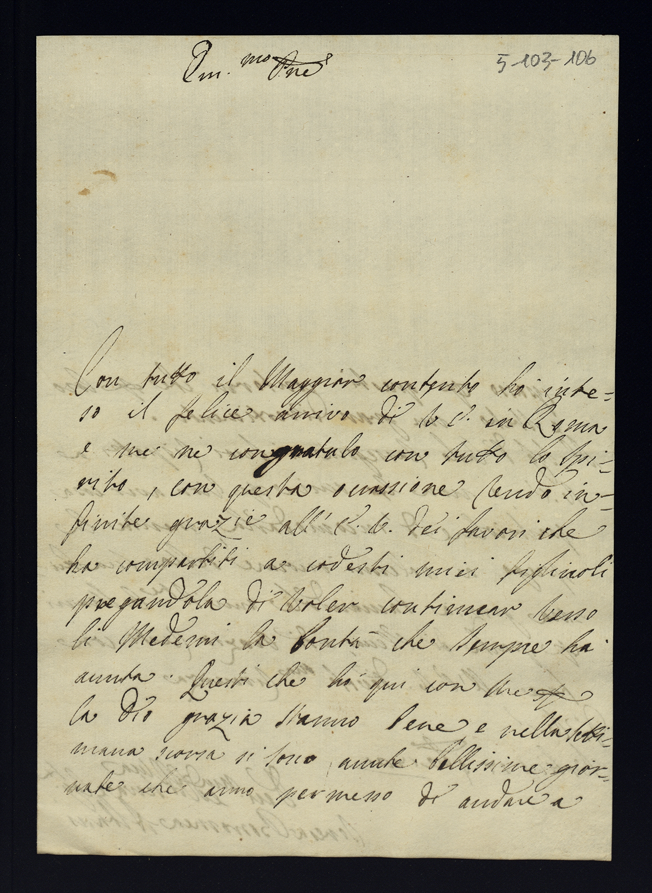 Em.mo Pne
5-103-106
Con tutto il Maggior contento ho inte=
so il felice arrivo di V. E. in Roma
e me ne congratulo con tutto lo Spi=
rito, con questa ocassione rendo in=
finite grazie all' E. V. dei favori che
ha compartiti a codesti miei figlioli
pregandola di voler continuar verso
li Medemi la bontà che sempre ha
auuta Questi che hò qui con me
la Dio grazia stanno bene e nella setti=
mana scorsa si sono auute bellissime gior=
nate che anno permesso di andare a